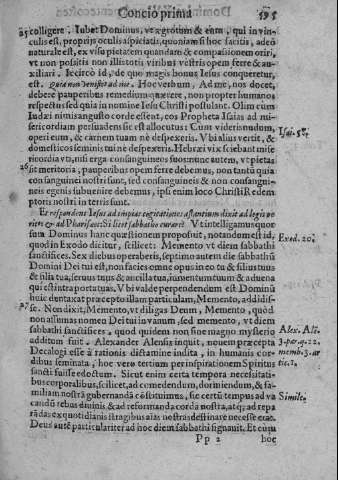 Concio prima 595
25 colligere. Iubet Dominus, vt ægrotum & eum, qui in vin-
culis est, proprijs oculis aspiciatis, quoniam si hoc facitis, adeò
naturale est, ex visu pietatem quandam & compassionem oriri,
vt non possitis non illis totis viribus vestris opem ferre & au-
xiliari. Iccircò id, de quo magis bonus Iesus conqueretur,
est. Quia non venistis ad me. Hoc verbum, Ad me, nos docet,
debere pauperibus remedium quærere, non propter humanos
respectus sed quia in nomine Iesu Christi postulant. Olim cum
Iudæi nimis angusto corde essent, eos Propheta Isaias ad mi-
sericordiam persuadens sic est allocutus: Cum videris nudum,
operi eum, & carnem tuam nè despexeris. Vbi alius vertit, &
domesticos seminis tui nè despexeris. Hebræi vix sciebant mise
ricordia vti, nisi erga consanguineos suos: nunc autem, vt pietas
26 sit meritoria, pauperibus opem ferre debemus, non tantù quia
consanguinei nostri sunt, sed consanguineis & non consangui-
neis egenis subuenire debemus, ipsi enim loco Christi Redem
ptoris nostri in terris sunt.
Et respondens Iesus ad impias cogitationes astantium dixit ad legis pe
ritos & ad Pharisæos: Si licet sabbatho curare? Vt intelligamus quor
sum Dominus hanc quæstionem proposuit, notandum est id,
quod in Exodo dicitur, scilicet: Memento vt diem sabbathi
sanctifices. Sex diebus operaberis, septimo autem die sabbathũ
Domini Dei tui est, non facies omne opus in eo tu & filius tuus
& filia tua, seruus tuus & ancilla tua, iumentum tuum & aduena
qui est intra portas tuas. Vbi valde perpendendum est Dominũ
huic dentaxat præcepto illam particulam, Memento, addidis-
27 se. Non dixit, Memento, vt diligas Deum, Memento, quòd
non assumas nomen Dei tui in vanum, sed memento, vt diem
sabbathi sanctifices, quod quidem non sine magno mysterio
additum fuit. Alexander Alensis inquit, nouem præcepta
Decalogi esse à rationis dictamine indita, in humanis cor-
dibus seminata, hoc vero tertium per inspirationem Spiritus
sancti fuisse edoctum. Sicut enim certa tempora necessitati-
bus corporalibus, scilicet, ad comedendum, dormiendum, & fa-
miliam nostrã gubernandã cõstituimus, sic certũ tempus ad va
candũ rebus diuinis, & ad reformanda corda nostra, atq; ad repa
rãdas ex quotidianis stragibus aĩas nostras destinare necesse erat.
Deus autẽ particulariter ad hoc diem sabbathi signauit. Et cùm
Pp 2 hoc
Isai. 58.
Exed. 20.
Alex. Alẽ.
3. par. q. 22.
memb. 3. ar
tic. 2.
Simile.